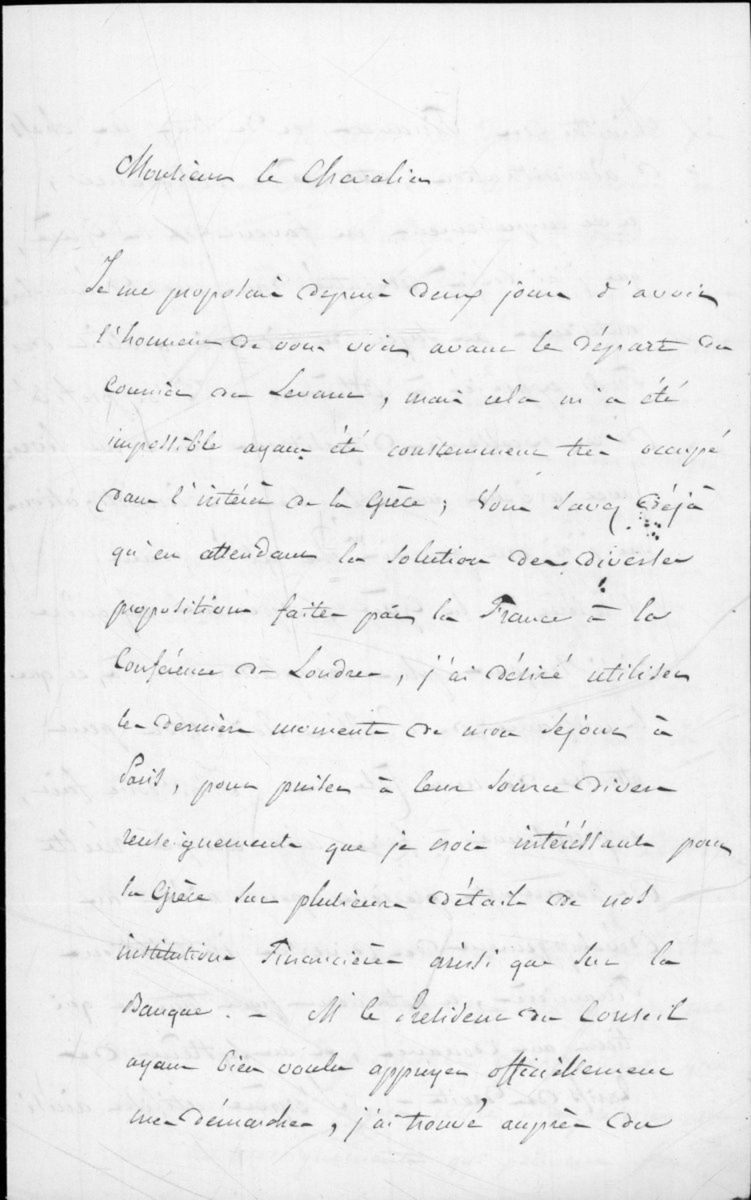 Monsieur le Chevalier
Je me proposais depuis deux jours d'avoir
l'honneur de vous voir avant le départ du
Courrier du Levant, mais cela m'a été
impossible ayant été constemment très occupé
dans l'intérêt de la Grèce; Vous savez déjà
qu'en attendant la solution des diverses
propositions faites par la France à la
Conférence de Londres, j'ai désiré utiliser
les derniers moments de mon séjour à
Paris, pour puiser à leur source divers
renseignements que je crois intéréssants pour
la Grèce sur plusieurs détails de nos
institutions Financières ainsi que sur la
Banque. - M le Président du Conseil
ayant bien voulu appuyer officiellement
mes démarches, j'ai trouvé auprès du